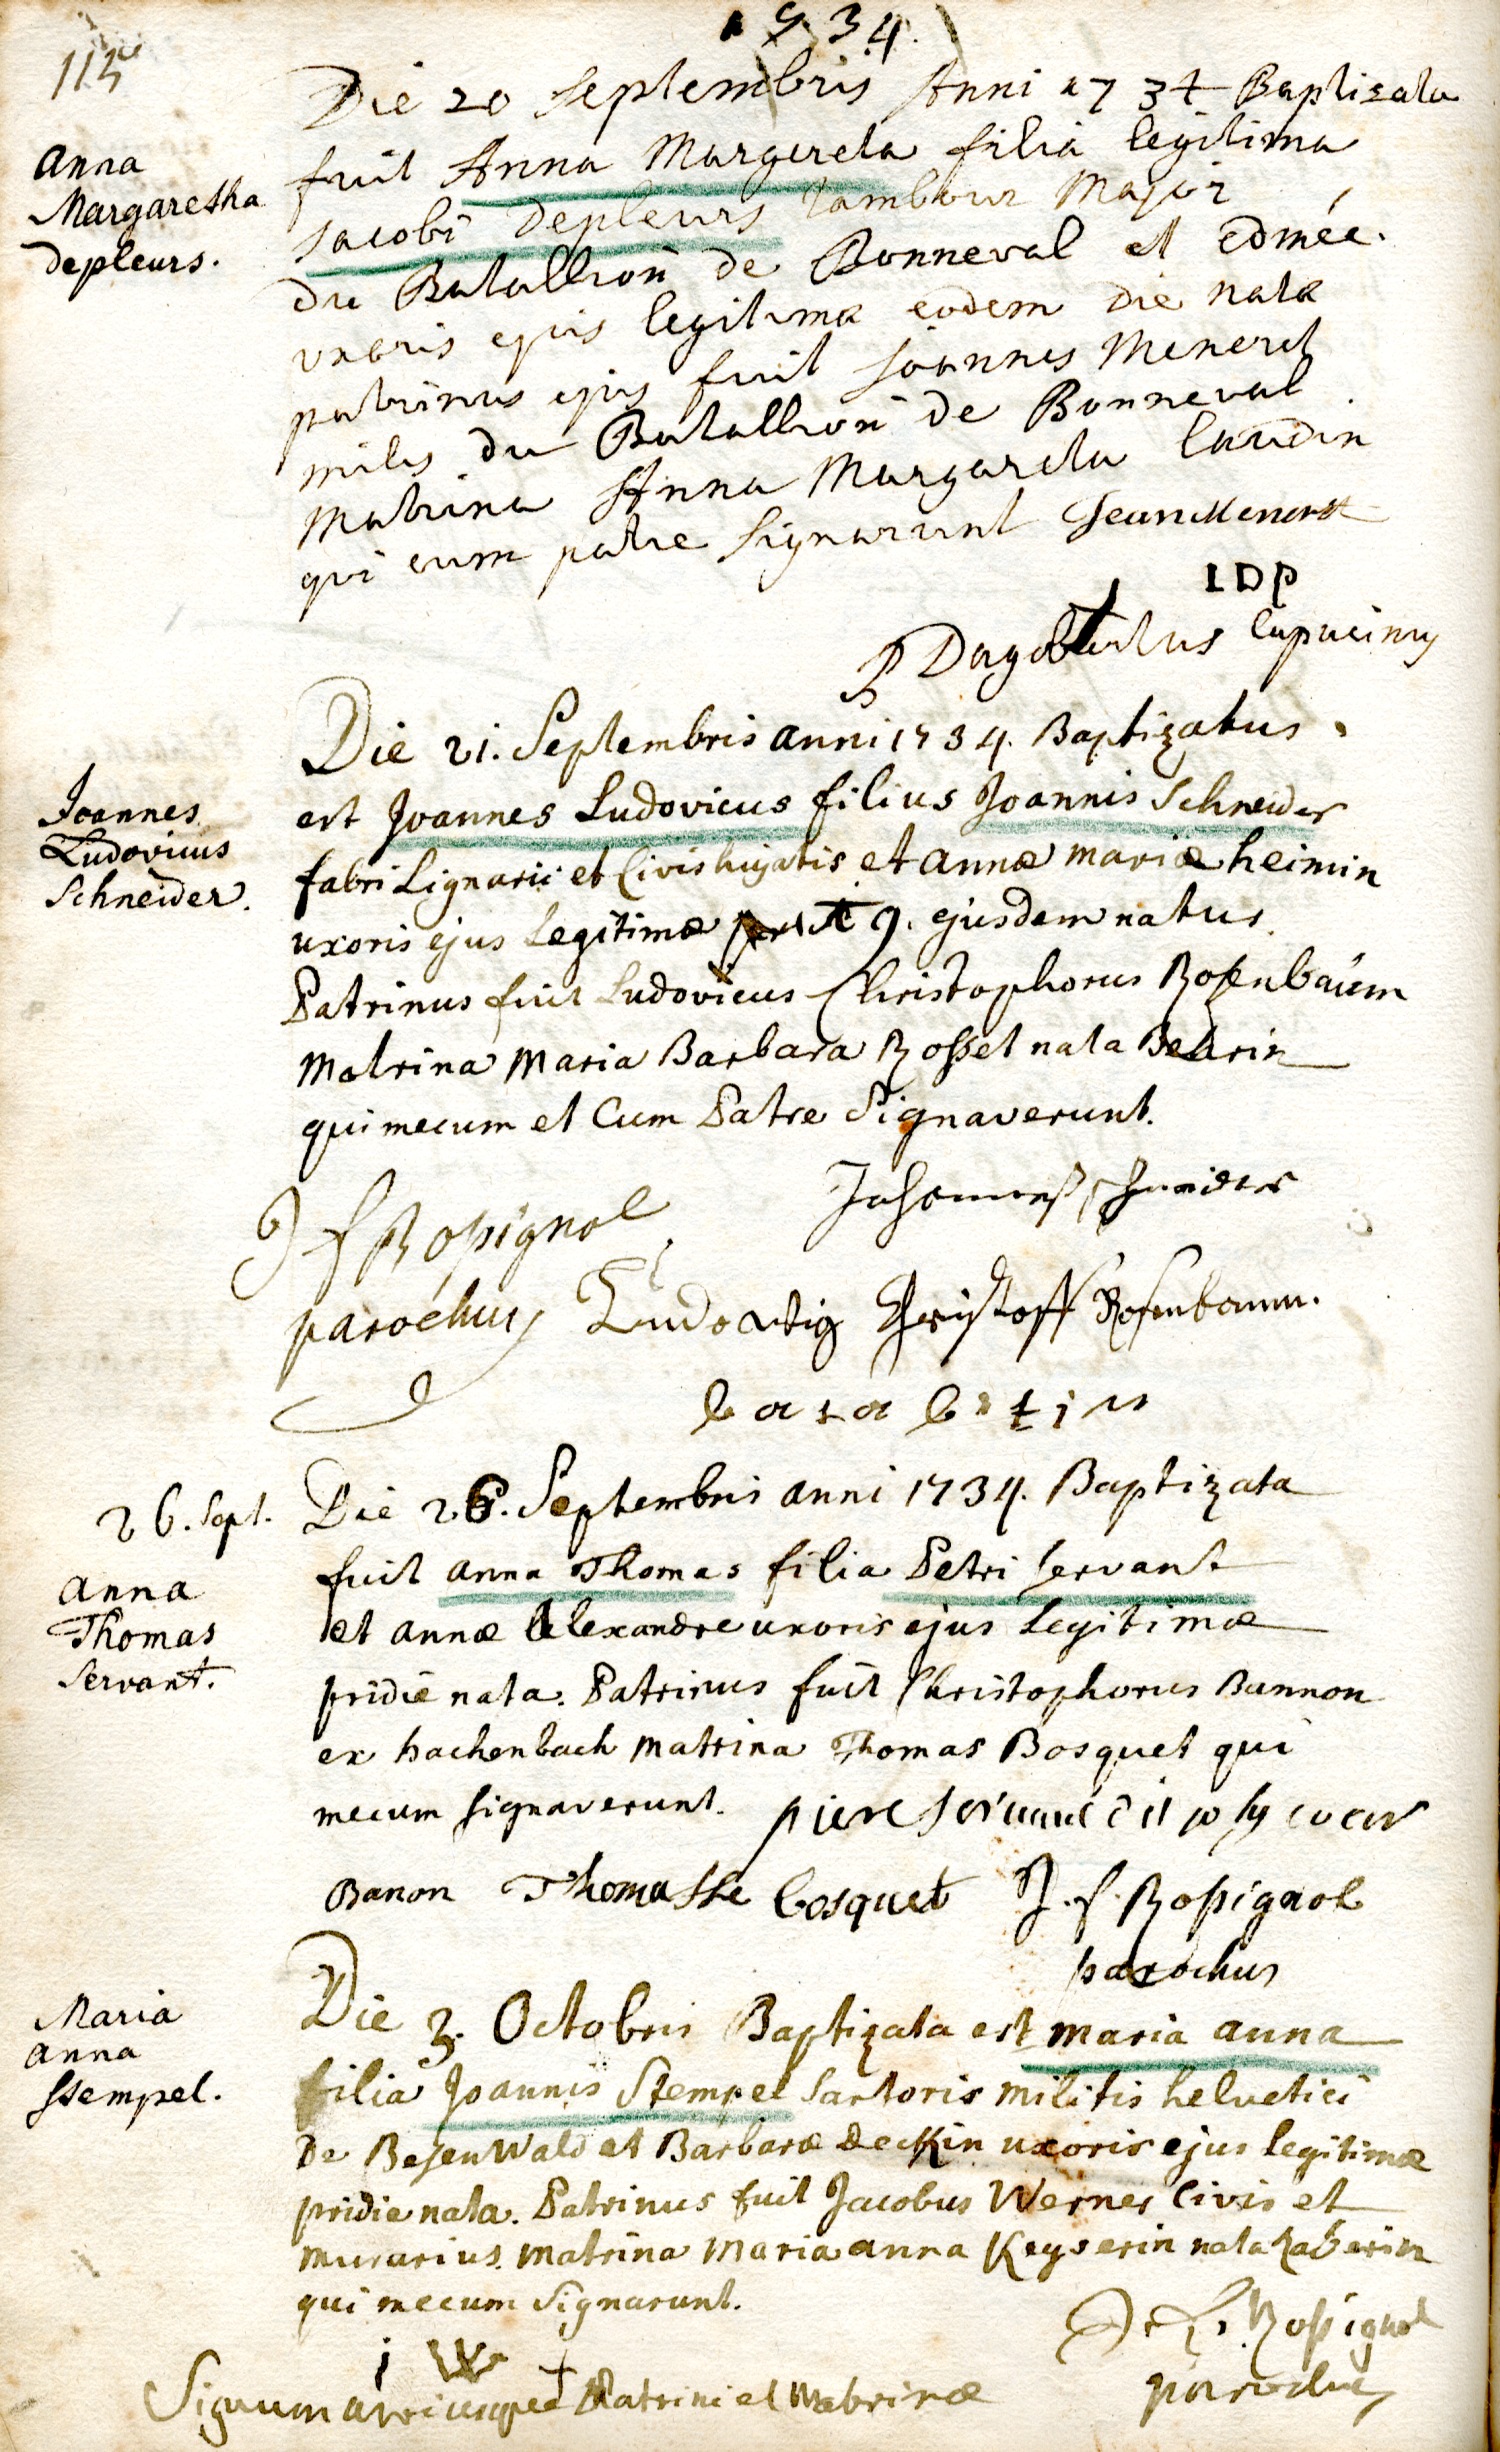 1734.
113
Anna
Margaretha
Depleurs.
Die 20 Septembris Anni 1734 Baptizata
fuit Anna Margereta filia legitima
Jacobi Depleurs tambour Major
du Batallion de Bonneval et Edmée
uxoris ejus legitima eodem die nata
patrinus ejus fuit Joannes Meneret
miles du Batallion de Bonneval
Matrina Anna Margareta laudin
qui cum patre signarunt Jean Menerst
IDP
P Dagobertus Capucinus
Joannes
Ludovicus
Schneider.
Die 21. Septembris anni 1734. Baptizatus
est Joannes Ludovicus filius Joannis Schneider
fabri Lignarii et Civis hujatis et annæ mariæ heimin
uxoris ejus Legitimæ 9. ejusdem natus.
Patrinus fuit Ludovicus Christophorus Rosenbaum
Matrina Maria Barbara Rosset nata
qui mecum et Cum Patre Signaverunt.
Johannes Schneider
J f Rossignol
parochus Ludowig Christoff Rosenbaum.
26. Sept.
Anna
Thomas
Servant.
Die 26. Septembris anni 1734. Baptizata
fuit anna Thomas filia Petri Servant
et annæ Alexandre uxoris ejus Legitimæ
pridie nata. Patrinus fuit Christophorus Bannon
ex hachenbach Matrina Thomas Bosquet qui
mecum signaverunt. piere servant
Banon Thomasse bosquet J. f. Rossignol
parochus
Maria
Anna
Stempel.
Die 3. Octobris Baptizata est Maria anna
filia Joannis Stempel Sartoris Militis helvetici
De Besenwald et Barbaræ Deckin uxoris ejus legitimæ
pridie nata. Patrinus fuit Jacobus Werner Civis et
murarius. Matrina Maria anna Keyserin nata
qui mecum Signarunt.
J. f. Rossignol
parochus
i W +
Signum utriusque Patrini et Matrinæ